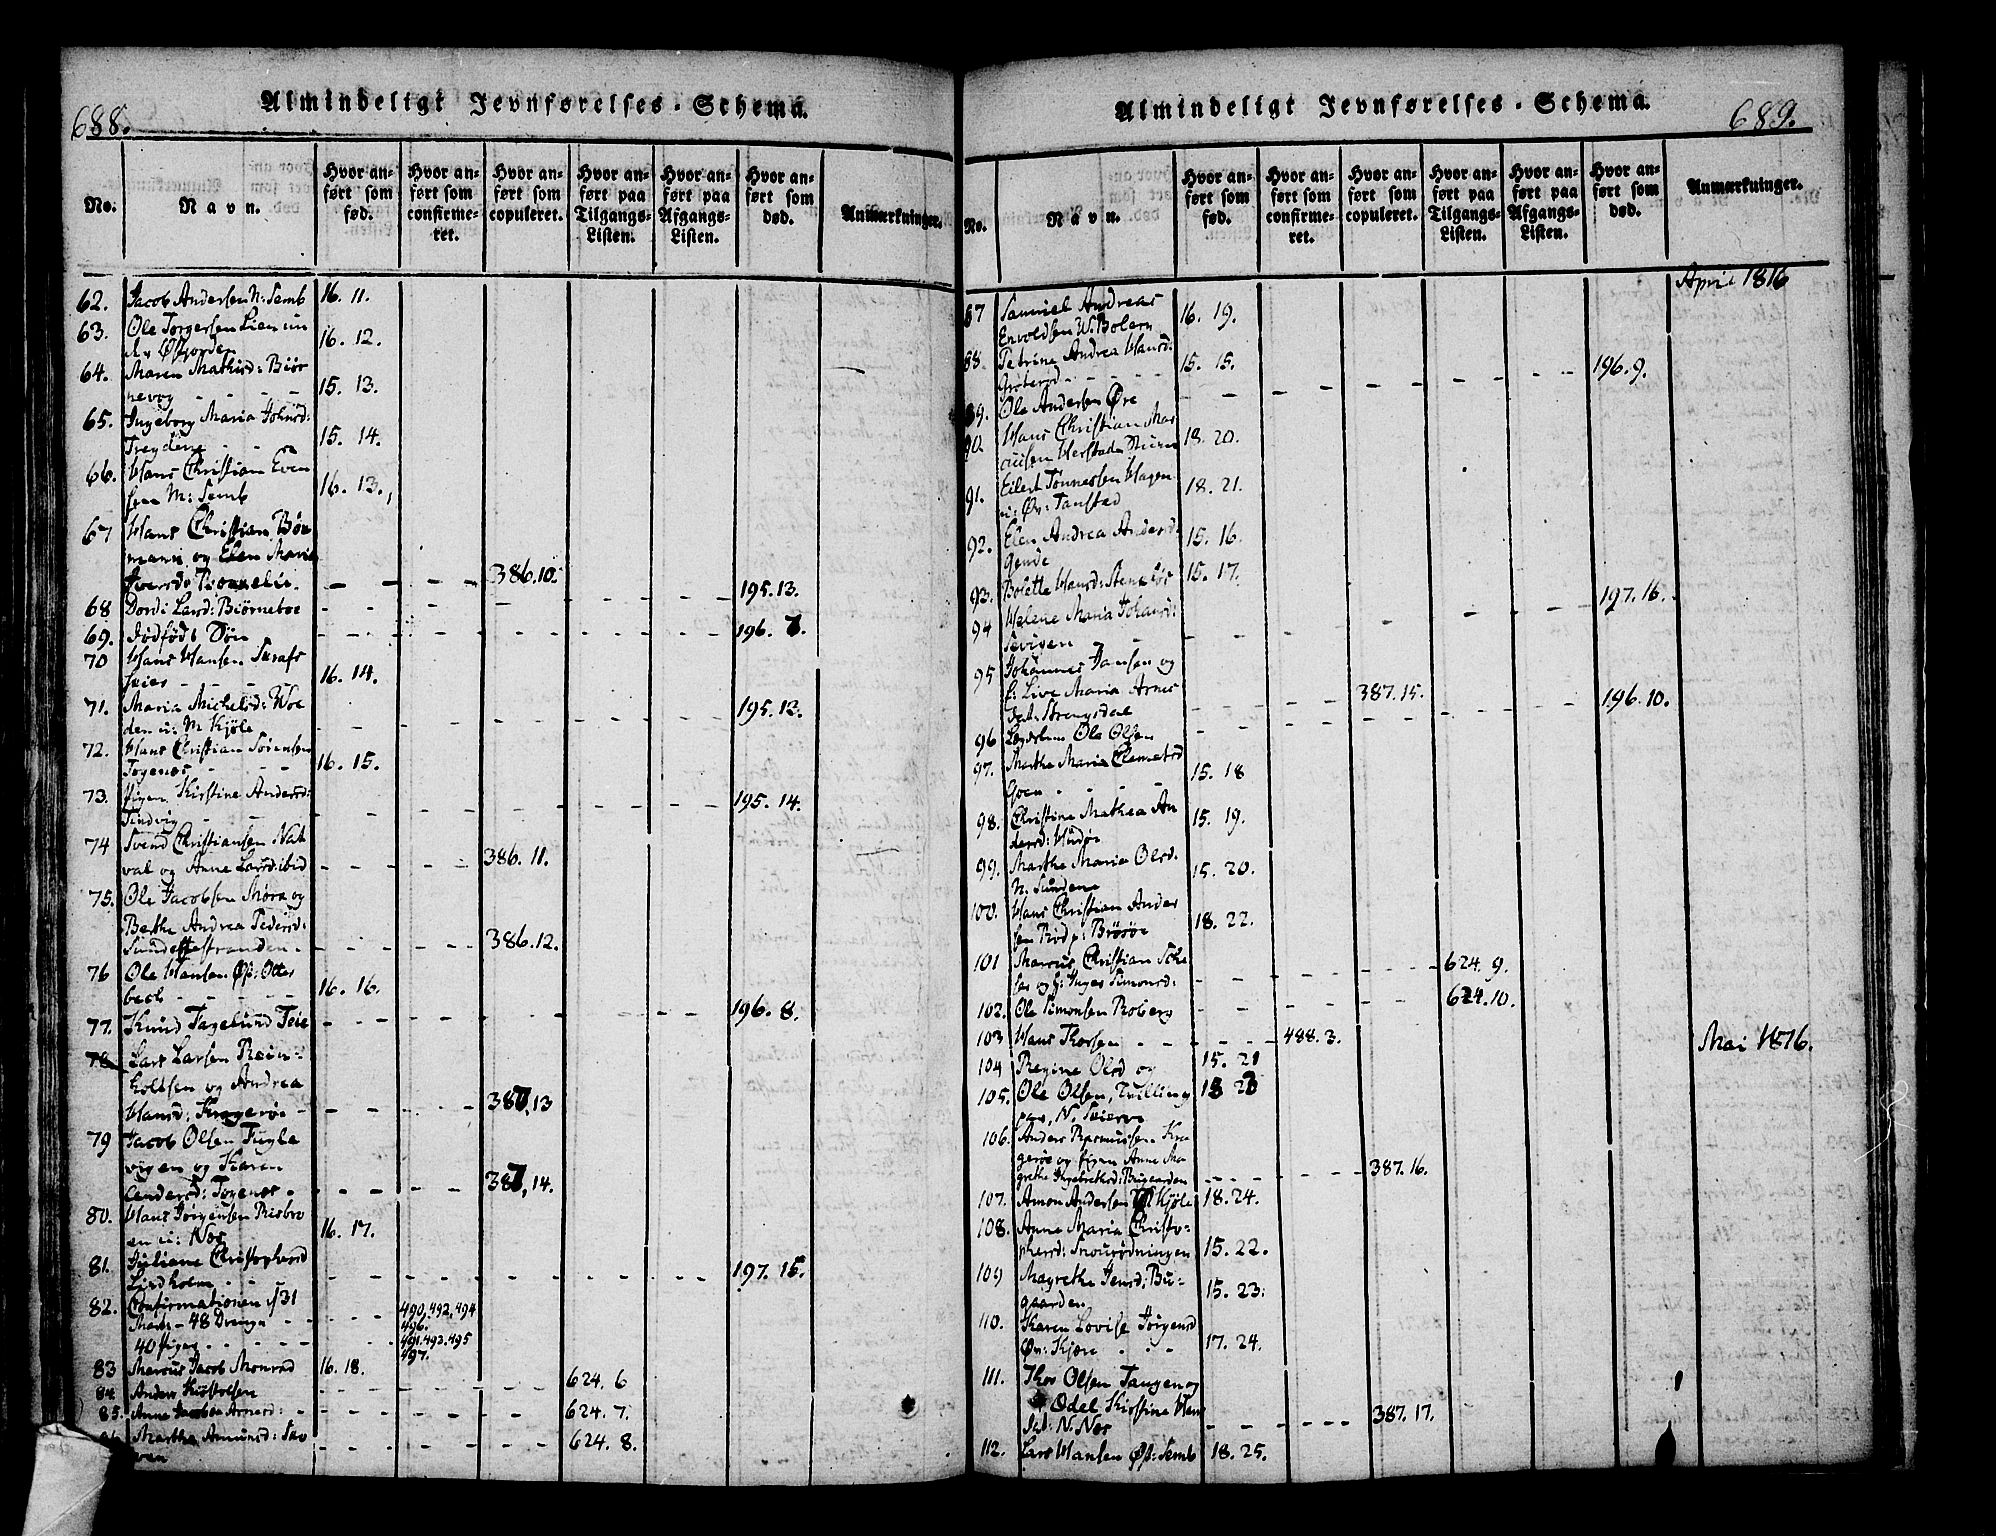 688.
Almindeligt Jevnførelses-Schema.
No. Navn. Hvor anført som fød. Hvor anført som confirmeret. Hvor anført som copuleret. Hvor anført paa Tilgangs-Listen. Hvor anført paa Afgangs-Listen. Hvor anført som død. Anmærkninger.
62. Jacob Andersen N: Semb 16. 11.
63. Ole Torgersen Lien
Øfjorden 16. 12.
64. Maren Mathisd: Biør
nevog - - - 15. 13.
65. Ingeborg Maria Johnsd:
Treydene - - 15. 14.
66. Hans Christian Even
sen M: Semb 16. 13.
67 Hans Christian Bör
mann og Elen Maria
Iversd: - - - 386.10.
68 Dordi Larsd: Biørneboe - - - 195.13.
69. Dødfødt Søn - - - 196. 7.
70 Hans Hansen
heier - - - 16. 14.
71. Maria Michelsd: Moe
den u: M Kjöle - - - 195.13.
72. Hans Christian Sørensen
Togenes - - - 16. 15.
73. Pigen Kirstine Andersd:
Tindvig - - - 195. 14.
74 Svend Christiansen Nat
val og Anne Larsd: ibid - - - 386. 11.
75. Ole Jacobsen Møra og
Berthe Andrea Pedersd:
Sundestranden - - - 386.12.
76 Ole Hansen Øst: Otter
bech - - - 16. 16.
77. Knud Tagelund Teie - - - 196. 8.
78 Lars Larsen Rein
holtsen og Andrea
Hansd: Kragerøe - - - 387,13
79 Jacob Olsen Fugle
vigen og Karen
Andersd: Togenes - - - 387, 14.
80. Hans Jörgensen Risbro
en u: Nes 16. 17.
81. Juliane Christophersd
Lindholm - - - 197. 15.
82. Confirmationen d/31
Marts - 48 Drenge - - 490, 492, 494
496.
40 Piger - - - 491. 493. 495
497.
83 Marcus Jacob Monrad 16. 18.
84. Anders Kistolsen - - - 624. 6
85. Anne Jacobea Arnesd: - - - 624. 7.
86. Marthe Amunsd: - - - 624. 8.
689.
Almindeligt Jevnførelses-Schema.
No. Navn. Hvor anført som fød. Hvor anført som confirmeret. Hvor anført som copuleret. Hvor anført paa Tilgangs-Listen. Hvor anført paa Afgangs-Listen. Hvor anført som død. Anmærkninger.
April 1816
87 Samuel Andreas
Envoldsen W. Bolern 16. 19.
88. Petrine Andrea Hansd:
Gröterød - - - 15. 15.
89. Ole Andersen Øre - - - 196. 9.
90. Hans Christian Mar
cusen 18. 20.
91. Eilert Tönnesen Hagen
u: Øv: Tanstad 18. 21.
92. Elen Andrea Andersd:
Gende 15. 16.
93. Bolette Hansd: 15. 17.
94 Helene Maria Johansd:
Sevigen - - - 197. 16.
95 Johannes Jansen og
f: Live Maria Arnes
dat: Strengsdal - - - 387. 15.
96 Ole Olsen - - - 196. 10.
97. Marthe Maria Clemetsd
Goen - - - 15. 18
98. Christine Mathea An
dersd: Husöe 15. 19.
99. Marthe Maria Olsd.
N. Sundene 15. 20.
100. Hans Christian Ander
sen Röd p: Brøsøe 18. 22.
101 Marcus Christian
og f: Inger Simonsd: - - - 624. 9.
102. Ole Simonsen Roberg - - - 624. 10.
103 Hans Thorsen - - - 488. 3. Mai 1816.
104 Regine Olsd og 15. 21
105. Ole Olsen, Tvilling
par, N. 18 23
106. Anders Rasmussen Kra
gerøe og Pigen Anne Ma
grethe Ingebrethsd: Bugaarden - - - 387. 16.
107. Amon Andersen Kjöle 18. 24.
108. Anne Maria Christo-
phersd: Snourödningen 15. 22.
109 Magrethe Jensd: Bu-
gaarden 15. 23.
110. Karen Lovise Jörgensd
Øv: Kjøre - - - 17. 24.
111. Thor Olsen Tangen og
Odel Kirstine Han
sd: N. Nes - - - 387. 17.
112. Lars Hansen Øst: Semb 18. 25.